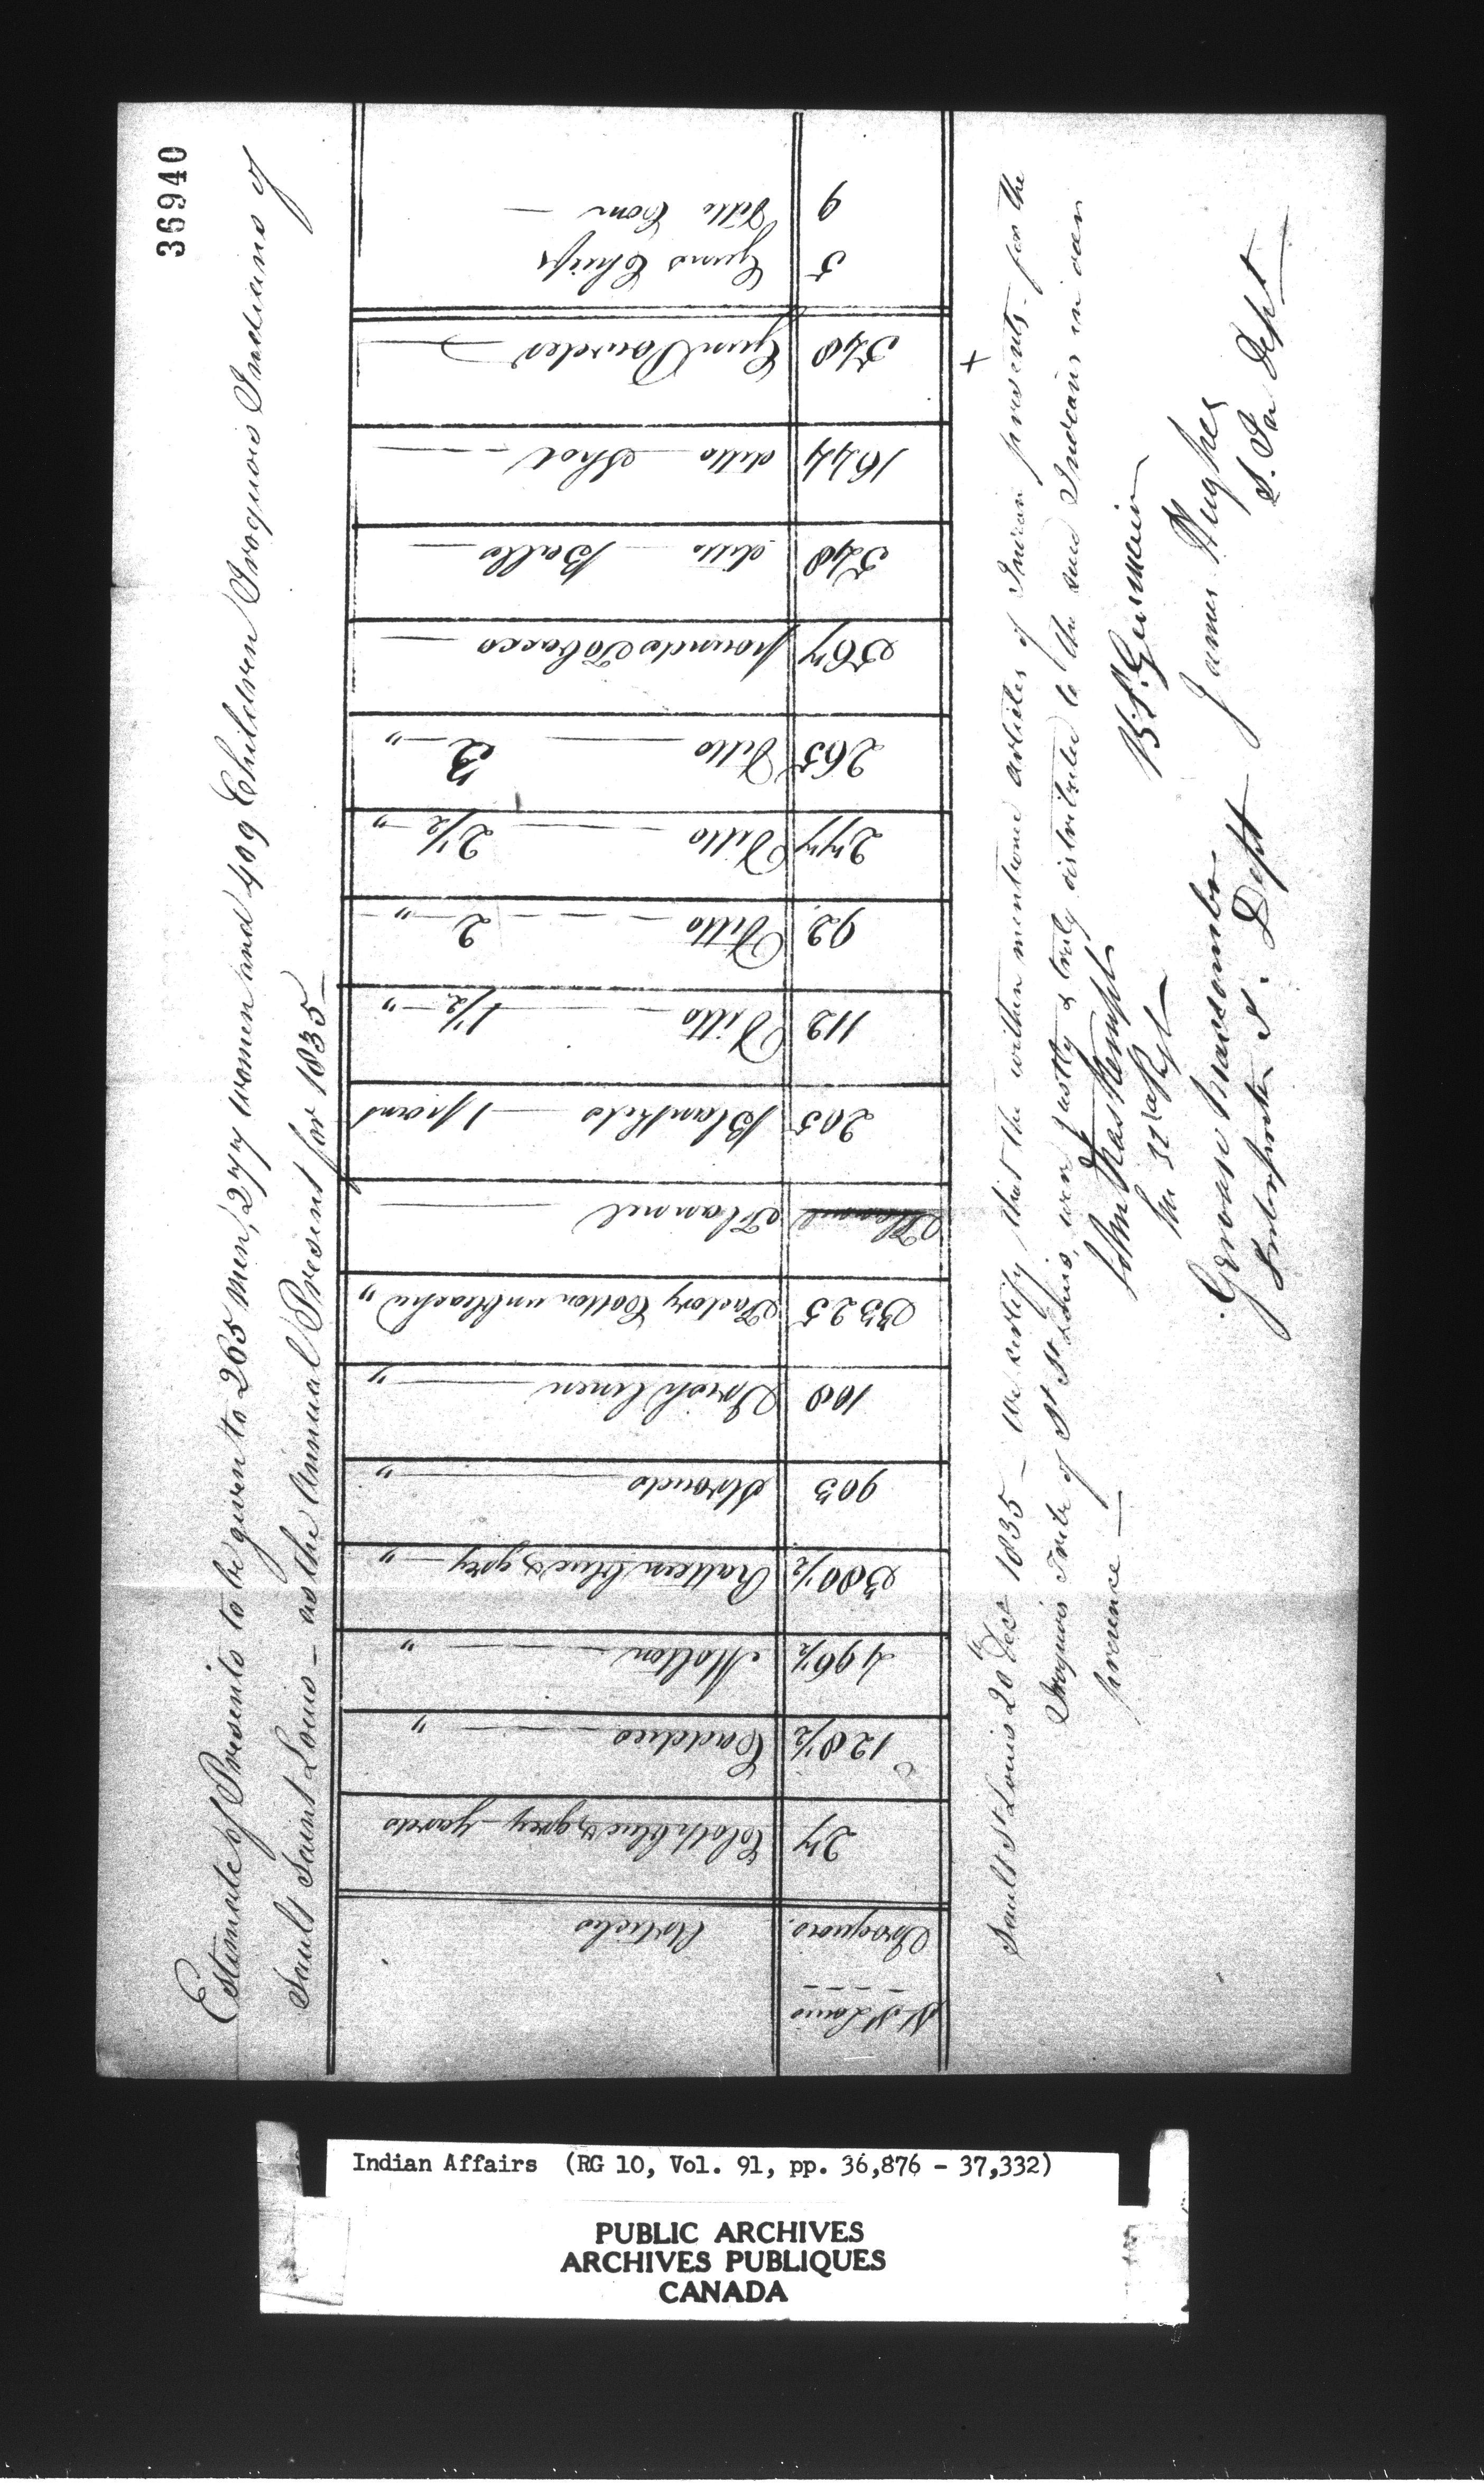 36940
Estimate of Presents to be given to 265 Men, 277 women and 409 Children Iroquois Indians of
Sault Saint Louis – as the Annual Present for 1835 –
St. St Louis
Iroquois. Articles
27 Cloth blue & grey – yards
128½ Caddies – "
496½ Molton – "
2300½ Ratteen blue & grey – "
903 Strouds – "
100 Irish linen – "
2325 Factory Cotton unbleached "
Flannel Flannel –
205 Blankets – 1 point
112 Ditto – 1½ – "
92 Ditto – 2 – "
277 Ditto – 2½ – "
265 Ditto – 3 – "
567 pounds Tobacco –
540 ditto – Balls –
1644 ditto – Shot –
540 Gun Powder –
5 Guns Chiefs
9 Ditto Com –
+
Sault St Louis 20th Oct 1835 – We certify that the within mentioned articles of Indian presents for the
Iroquois Tribe of St St Louis, were justly & truly distributed to the said Indians in our
presence –
B. S. Germain
Col in 32d Regt
James Hughes
S. In Dept
Gervase Macomber
Interpreter I. Dept
Indian Affairs (RG 10, Vol. 91, pp. 36,876 - 37,332)
PUBLIC ARCHIVES
ARCHIVES PUBLIQUES
CANADA